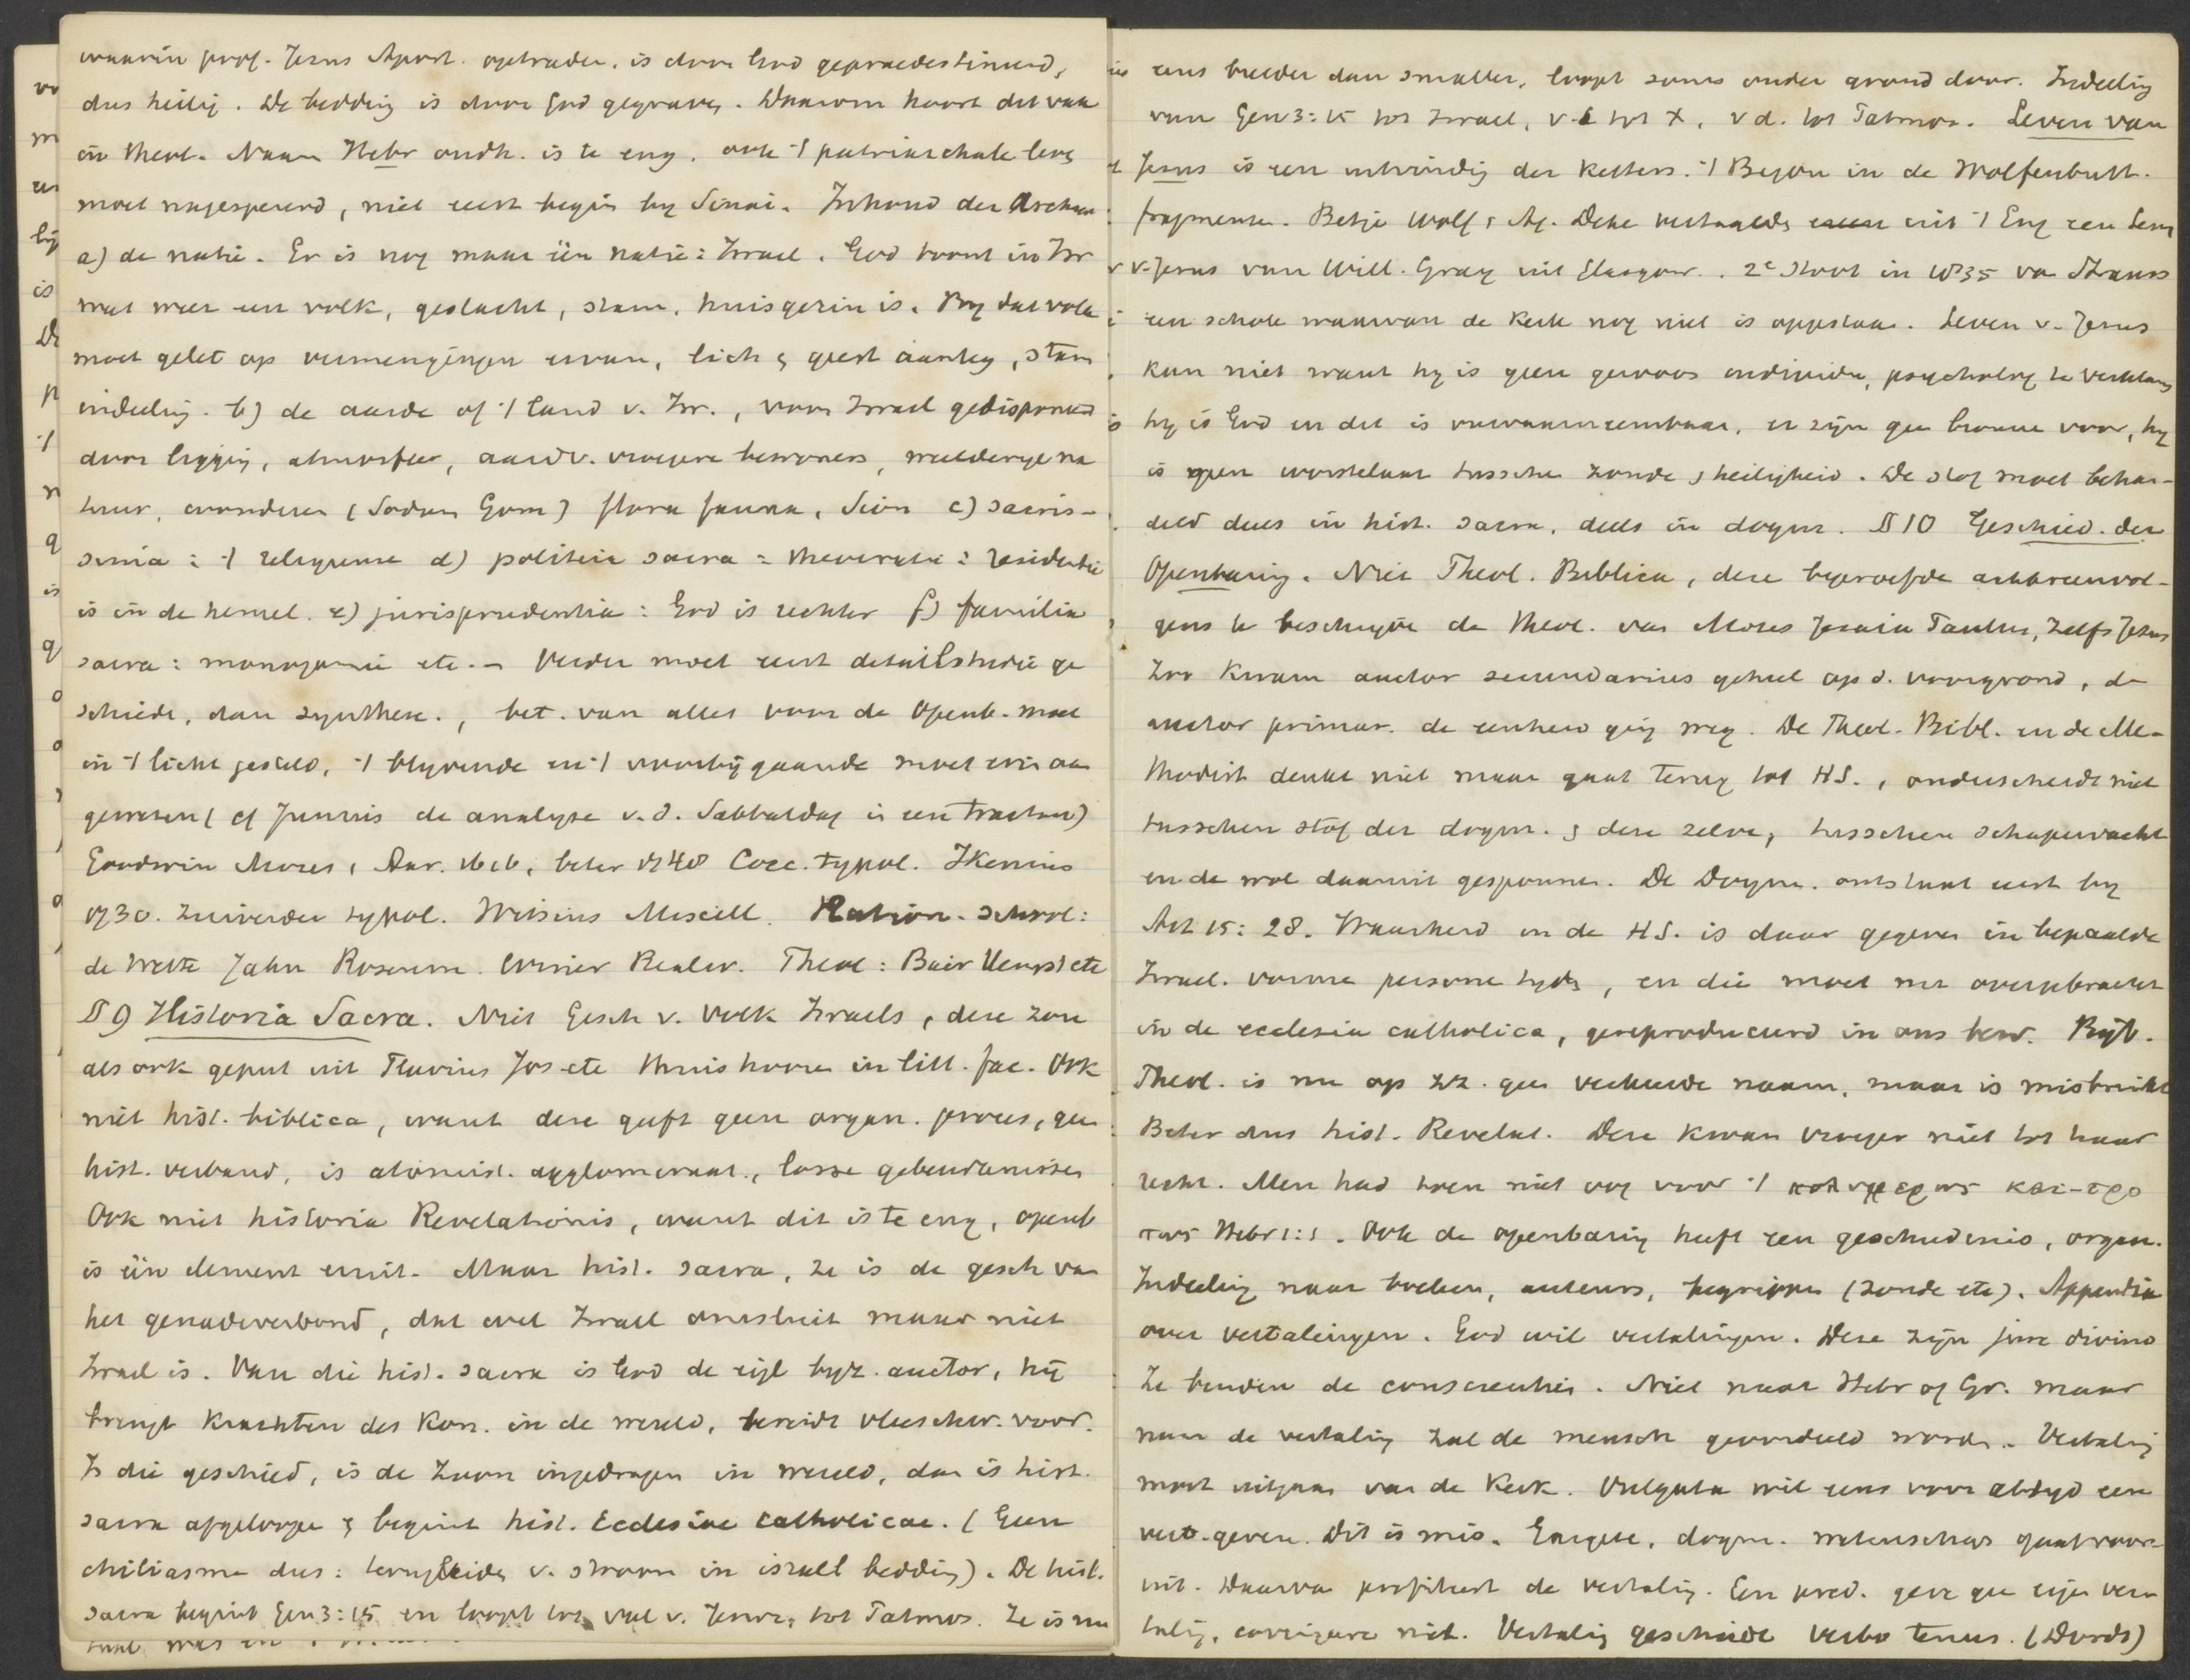 waarin prof. Jezus Apost. optraden, is door God gepraedestineerd,
dus heilig. De bedding is door God gegraven. Daarom hoort dit vak
in theol. Naam Hebr oudh. is te eng, ook 't patriarchale leven
moet nagespeurd, niet eerst begin by Sinai. Inhoud der Archaeo
a) de natie. Er is nog maar één natie: Israel. God toont in Isr
wat weer een volk, geslacht, stam, huisgezin is. By dat volk
moet gelet op vermengingen ervan, lich & geest aanleg, stam
indeeling. b) de aarde of 't land v. Isr., voor Israel gedisponeerd
door ligging, atmosfeer, aardv. vroegere bewoners, weelderige na
tuur, wonderen (Sodom Gom) flora fauna, Sion c) sacris-
simia: 't religieuse d) politeia sacra = theocratie: residentie
is in de hemel. e) jurisprudentia: God is rechter f) familia
sacra: monogamie etc. – Verder moet eerst detailstudie ge
schieden, dan synthese., bet. van alles voor de Openb. moet
in 't licht gesteld, 't blyvende en 't voorbijgaande moet erin aan
gewezen (cf Junius de analyse v.d. Sabbatdag in een tractaat)
Goodwin Mozes, Aar. 1616, beter 1740 Cocc. typol. Ikenius
1730. Zuiverder typol. Witsius Miscell. Ration. school:
de Wette Jahn Rosenm. Winer Realw. Theol: Bair Hengst etc
§ 9 Historia Sacra. Niet Gesch v. Volk Israels, deze zou
als ook geput uit Flavius Jos etc thuishooren in litt. fac. Ook
niet hist. biblica, want deze geeft geen organ. proces, geen
hist. verband, is atomist. agglomeraat, losse gebeurtenissen
Ook niet historia Revelationis, want dit is te eng, openb
is één element eruit. Maar hist. sacra, ze is de gesch van
het genadeverbond, dat ovel Israel omsluit maar niet
Israel is. Van die hist. sacra is God de eigl byz. auctor, hij
brengt krachten des Kon. in de wereld, bereidt vleeschw. voor.
Is die geschied, is de Zoon ingedragen in wereld, dan is hist.
sacra afgeloopen & begint hist. Ecclesiae catholicae. (Geen
chiliasme dus: terugleiden v. stroom in israel bedding). De hist.
sacra begint Gen 3:15 en loopt tot val v. Jeruz, tot Patmos. Ze is nu
eens breeder dan smaller, loopt soms onder grond door. Indeeling
van Gen 3:15 tot Israel, v. I tot X, v d. tot Patmos. Leven van
Jezus is een uitvinding der ketters. 't Begon in de Wolfenbutt.
fragmenten. Betje Wolf & Ag. Deken vertaalden uit 't Eng een Leven
v. Jezus van Will. Gray uit Glasgow. 2e stoot in 1835 van Strauss
een schok waarvan de Kerk nog niet is opgestaan. Leven v. Jezus
kan niet want hy is geen gewoon individu, psycholog te verklaren
hy is God en dit is onwaarneembaar, er zijn geen bronnen voor, hy
is geen worstelaar tusschen zonde & heiligheid. De stof moet behan-
deld deels in hist. sacra, deels in dogm. § 10 Geschied. der
Openbaring. Niet Theol. Biblica, deze beproefde achtereenvol-
gens te beschryven de theol. van Mozes Jesaia Paulus, zelfs Jezus
Zoo kwam auctor secundarius geheel op d. voorgrond, de
auctor primar. de eenheid ging weg. De Theol. Bibl. en de Me-
thodist denkt niet maar gaat terug tot H.S., onderscheidt niet
tusschen stof der dogm. & deze zelve, tusschen schapenvacht
en de wol daaruit gesponnen. De Dogm. ontstaat eerst by
Act 15:28. Waarheid in de H.S. is daar gegeven in bepaalde
Israel. vormen personen tyden, en die moet nu overgebracht
in de ecclesia catholica, gereproduceerd in ons bew. Byb.
Theol. is nu op zz. geen verkeerde naam, maar is misbruikt
Beter dus hist. Revelat. Deze kwam vroeger niet tot haar
recht. Men had toen niet oog voor 't πολυμερως και-τρο
πως Hebr 1:1. Ook de openbaring heeft een geschiedenis, organ.
Indeeling naar boeken, auteurs, begrippen (zonde etc). Appendix
over vertalingen. God wil vertalingen. Deze zijn jure divino
Ze binden de conscientie. Niet naar Hebr of Gr. maar
naar de vertaling zal de mensch geoordeeld worden. Vertaling
moet uitgaan van de Kerk. Vulgata wil eens voor altyd een
vert. geven. Dit is mis. Exegese, dogm. wetenschap gaat voor-
uit. Daarvan profiteert de vertaling. Een pred. geve geen eigen ver
taling, corrigeere niet. Vertaling geschiede verbo tenus. (Dordt)